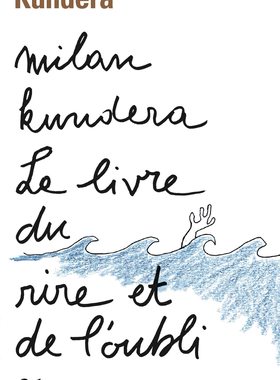 Kundera
milan
kundera
Le livre
du
rire et
de l'oubli